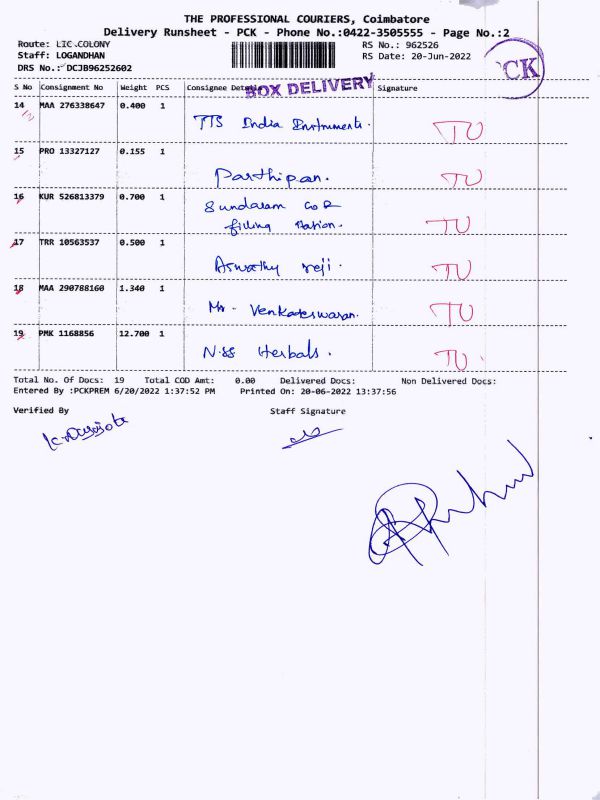 THE PROFESSIONAL COURIERS, Coimbatore
Delivery Runsheet - PCK - Phone No.:0422-3505555 - Page No.:2
Route: LIC COLONY
RS No.: 962526
Staff: LOGANDHAN
RS Date: 20-Jun-2022
DRS No.: DCJB96252602
PCK
S No Consignment No Weight PCS Consignee Details Signature
BOX DELIVERY
14 MAA 276338647 0.400 1
TTS India Instruments. TU
15 PRO 13327127 0.155 1
Parthipan. TU
16 KUR 526813379 0.700 1
Sundaram
filling station. TU
17 TRR 10563537 0.500 1
Aswathy reji. TU
18 MAA 290788160 1.340 1
Mr. Venkadeswaran. TU
19 PMK 1168856 12.700 1
N.SS Herbals. TU
Total No. Of Docs: 19 Total COD Amt: 0.00 Delivered Docs: Non Delivered Docs:
Entered By :PCKPREM 6/20/2022 1:37:52 PM Printed On: 20-06-2022 13:37:56
Verified By Staff Signature